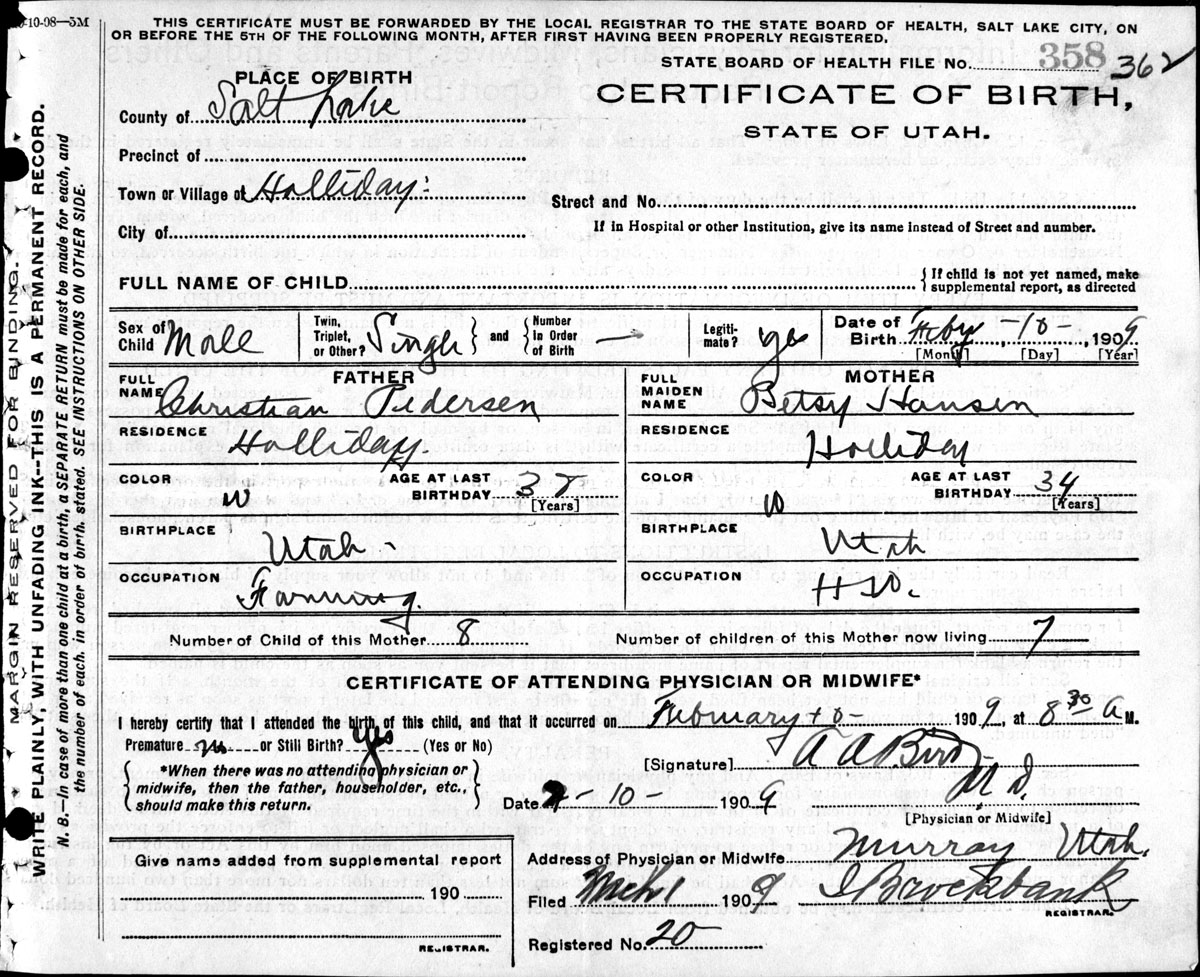 10-98—3M
THIS CERTIFICATE MUST BE FORWARDED BY THE LOCAL REGISTRAR TO THE STATE BOARD OF HEALTH, SALT LAKE CITY, ON
OR BEFORE THE 5TH OF THE FOLLOWING MONTH, AFTER FIRST HAVING BEEN PROPERLY REGISTERED.
STATE BOARD OF HEALTH FILE No. 358 362
PLACE OF BIRTH
CERTIFICATE OF BIRTH,
STATE OF UTAH.
County of Salt Lake
Precinct of
Town or Village of Holliday
Street and No.
City of
If in Hospital or other Institution, give its name instead of Street and number.
FULL NAME OF CHILD
{If child is not yet named, make
supplemental report, as directed
Sex of
Child Male
Twin,
Triplet,
or Other? Single
} and {
Number
In Order
of Birth —
Legiti-
mate? yes
Date of
Birth Feby - 10 - , 1909
[Month] [Day] [Year]
FATHER
FULL
NAME Christian Pedersen
MOTHER
FULL
MAIDEN
NAME Betsy Hansen
RESIDENCE Holliday
RESIDENCE Holliday
COLOR W
AGE AT LAST
BIRTHDAY
[Years]
COLOR W
AGE AT LAST
BIRTHDAY 34
[Years]
BIRTHPLACE Utah -
BIRTHPLACE Utah
OCCUPATION Farming.
OCCUPATION H W.
Number of Child of this Mother 8
Number of children of this Mother now living 7
CERTIFICATE OF ATTENDING PHYSICIAN OR MIDWIFE*
I hereby certify that I attended the birth of this child, and that it occurred on February 10 - 1909, at 8 30 A M.
Premature no or Still Birth? Yes (Yes or No)
{*When there was no attending physician or
midwife, then the father, householder, etc.,
should make this return.}
[Signature] A A Bird
M D.
[Physician or Midwife]
Date 2 - 10 - 1909
Give name added from supplemental report
190
REGISTRAR.
Address of Physician or Midwife Murray Utah.
Filed Mch. 1909 Brockbank
REGISTRAR.
Registered No. 20
MARGIN RESERVED FOR BINDING.
WRITE PLAINLY, WITH UNFADING INK--THIS IS A PERMANENT RECORD.
N. B.—In case of more than one child at a birth, a SEPARATE RETURN must be made for each, and
the number of each, in order of birth, stated. SEE INSTRUCTIONS ON OTHER SIDE.